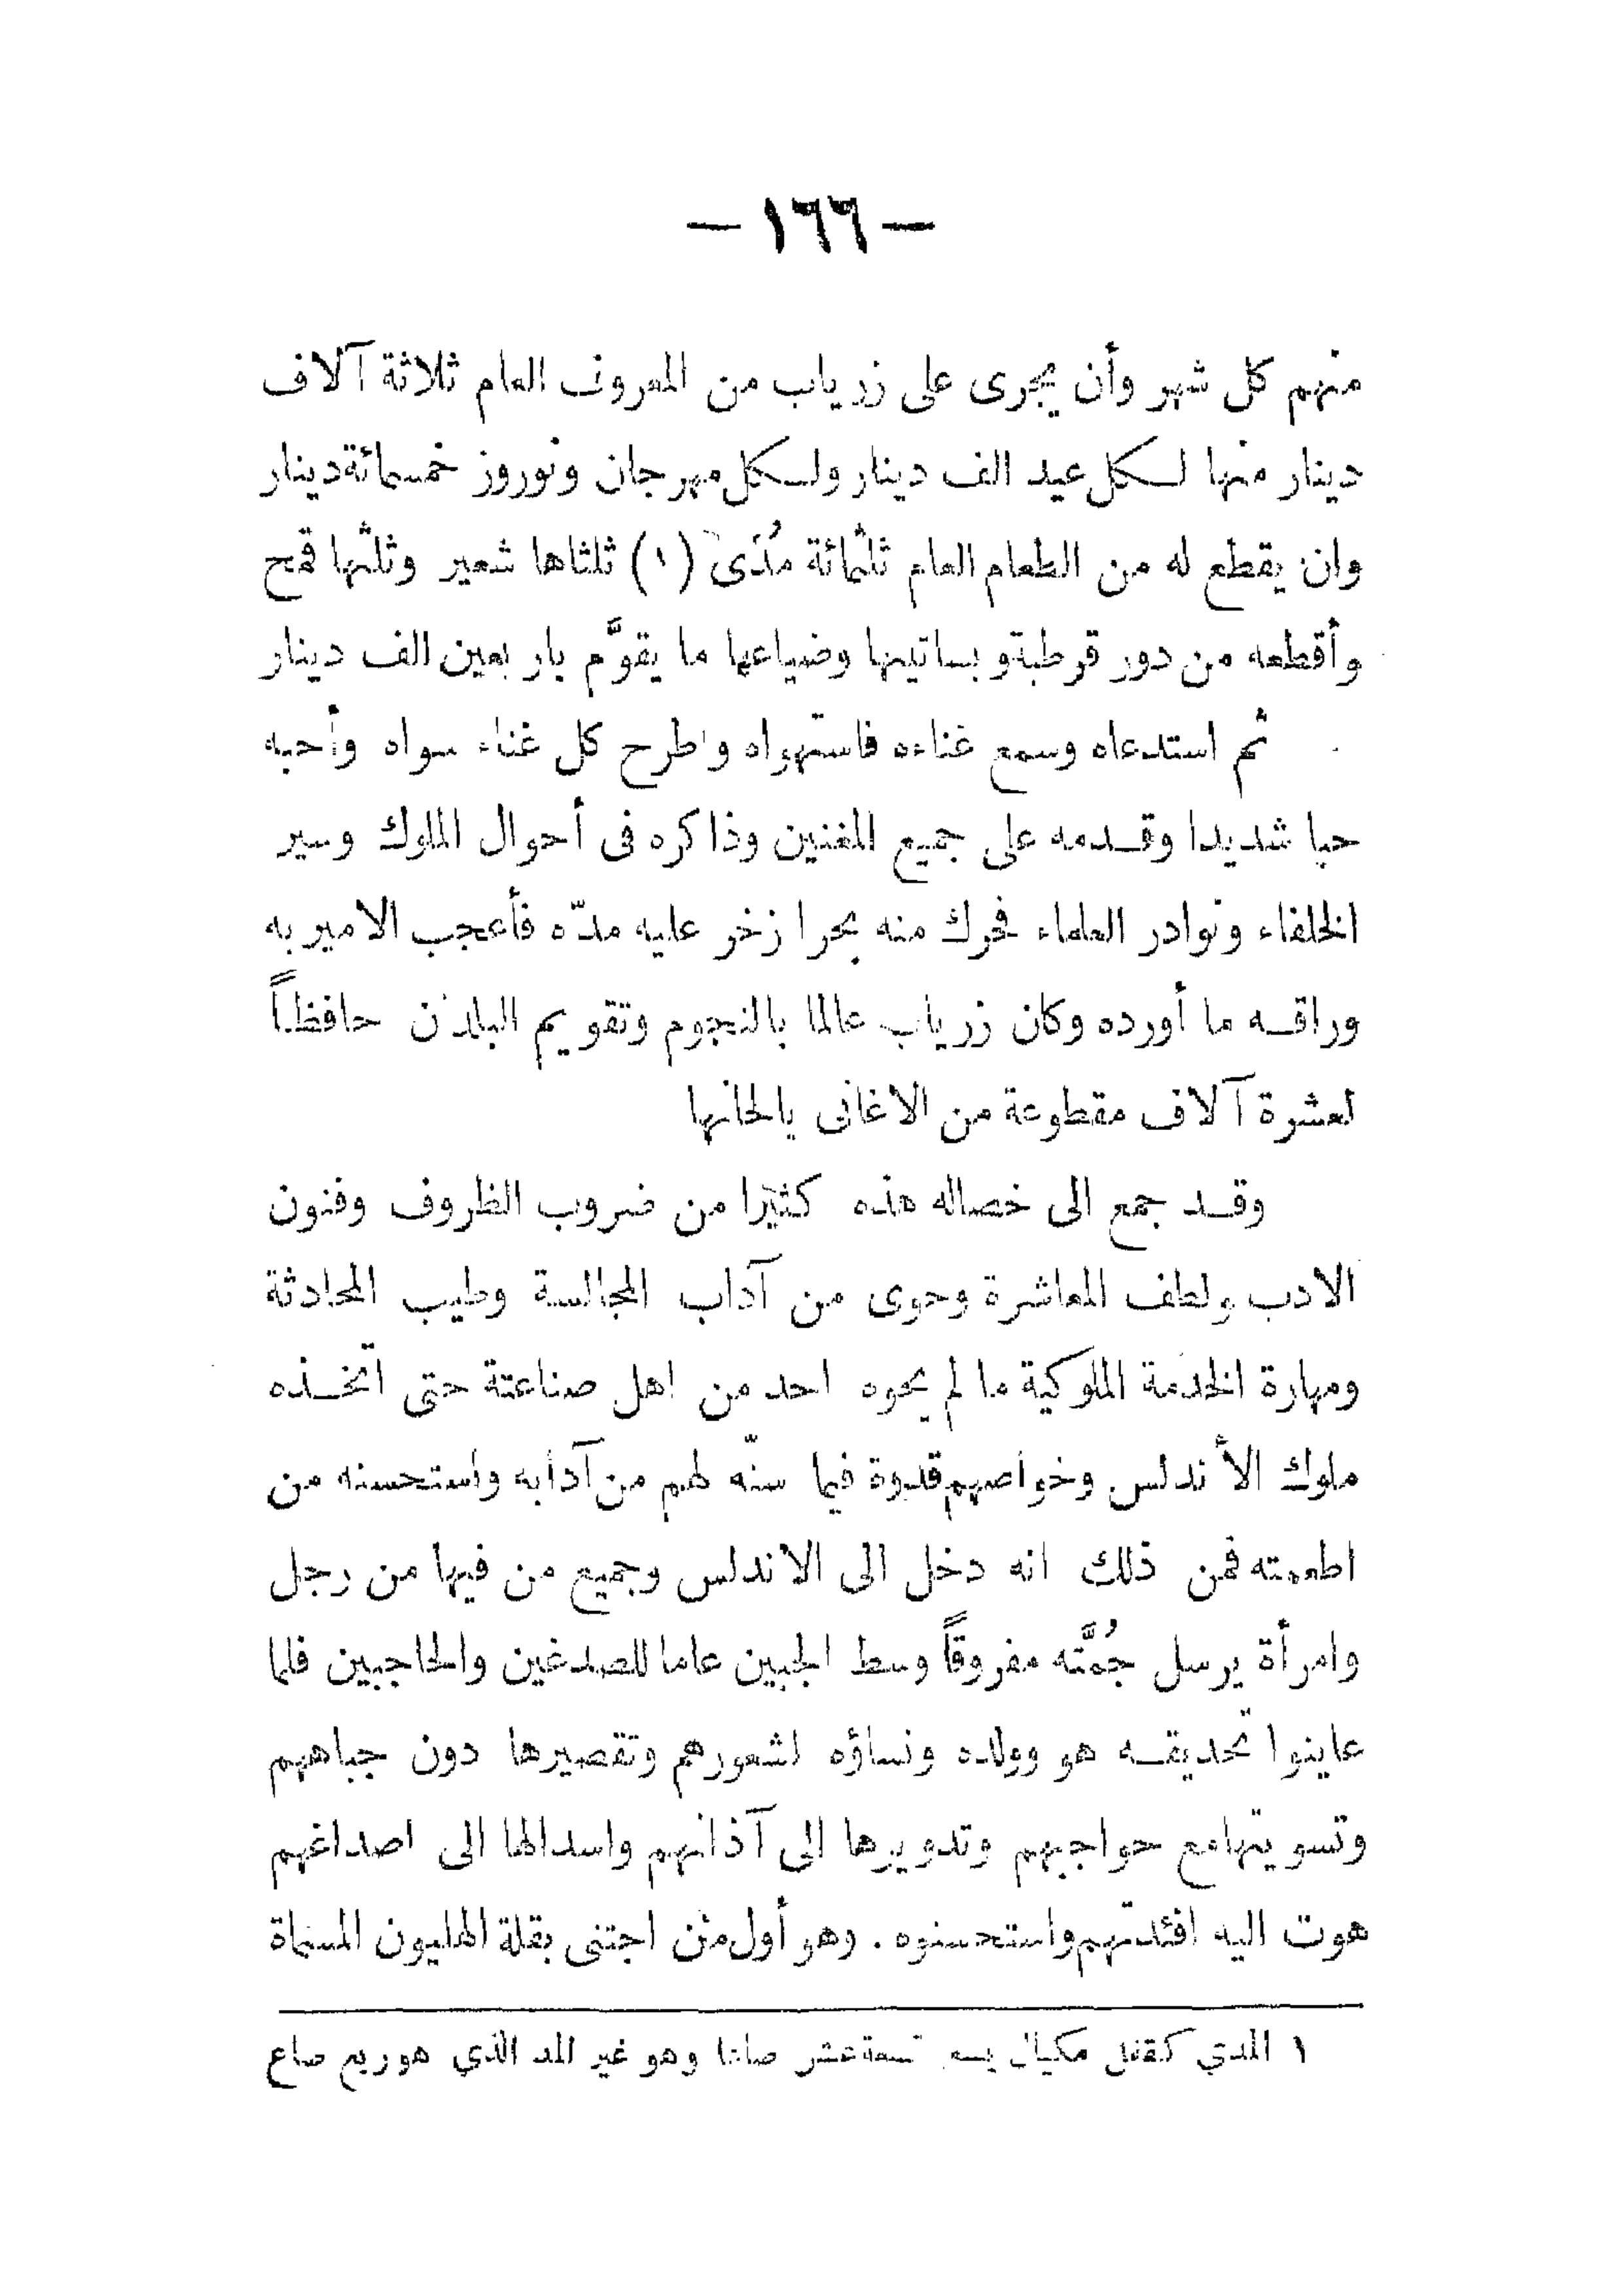 — ١٦٦ —
منهم كل شهر وأن يجرى على زرياب من المعروف العام ثلاثة آلاف
دينار منها لكل عيد الف دينار ولكل مهرجان ونوروز خمسمائة دينار
وان يقطع له من الطعام العام ثلثمائة مُدَى (١) ثلثاها شعير وثلثها قمح
وأقطعه من دور قرطبة وبساتينها وضياعها ما يقوَّم باربعين الف دينار
ثم استدعاه وسمع غناءه فاستهواه واطرح كل غناء سواه وأحبه
حبا شديدا وقدمه على جميع المغنين وذاكره فى أحوال الملوك وسير
الخلفاء ونوادر العلماء فحرك منه بحرا زخر عليه مدّه فأعجب الامير به
وراقه ما أورده وكان زرياب عالما بالنجوم وتقويم البلدن حافظاً
لعشرة آلاف مقطوعة من الاغانى بالحانها
وقد جمع الى خصاله هذه كثيرا من ضروب الظروف وفنون
الادب ولطف المعاشرة وحوى من آداب المجالسة وطيب المحادثة
ومهارة الخدمة الملوكية ما لم يحوه احد من اهل صناعتة حتى اتخذه
ملوك الأندلس وخواصهم قدوة فيما سنّه لهم من آدابه واستحسنه من
اطعمته فمن ذلك انه دخل الى الاندلس وجميع من فيها من رجل
وامرأة يرسل جُمَّته مفروقاً وسط الجبين عاما للصدغين والحاجبين فلما
عاينوا تحديقه هو وولده ونساؤه لشعورهم وتقصيرها دون جباههم
وتسويتها مع حواجبهم وتدويرها الى آذانهم واسدالها الى اصداغهم
هوت اليه افئدتهم واستحسنوه . وهو أول من اجتنى بقلة الهليون المسماة
١ المدي كقفل مكيال يسع تسعة عشر صاعا وهو غير المد الذي هو ربع صاع